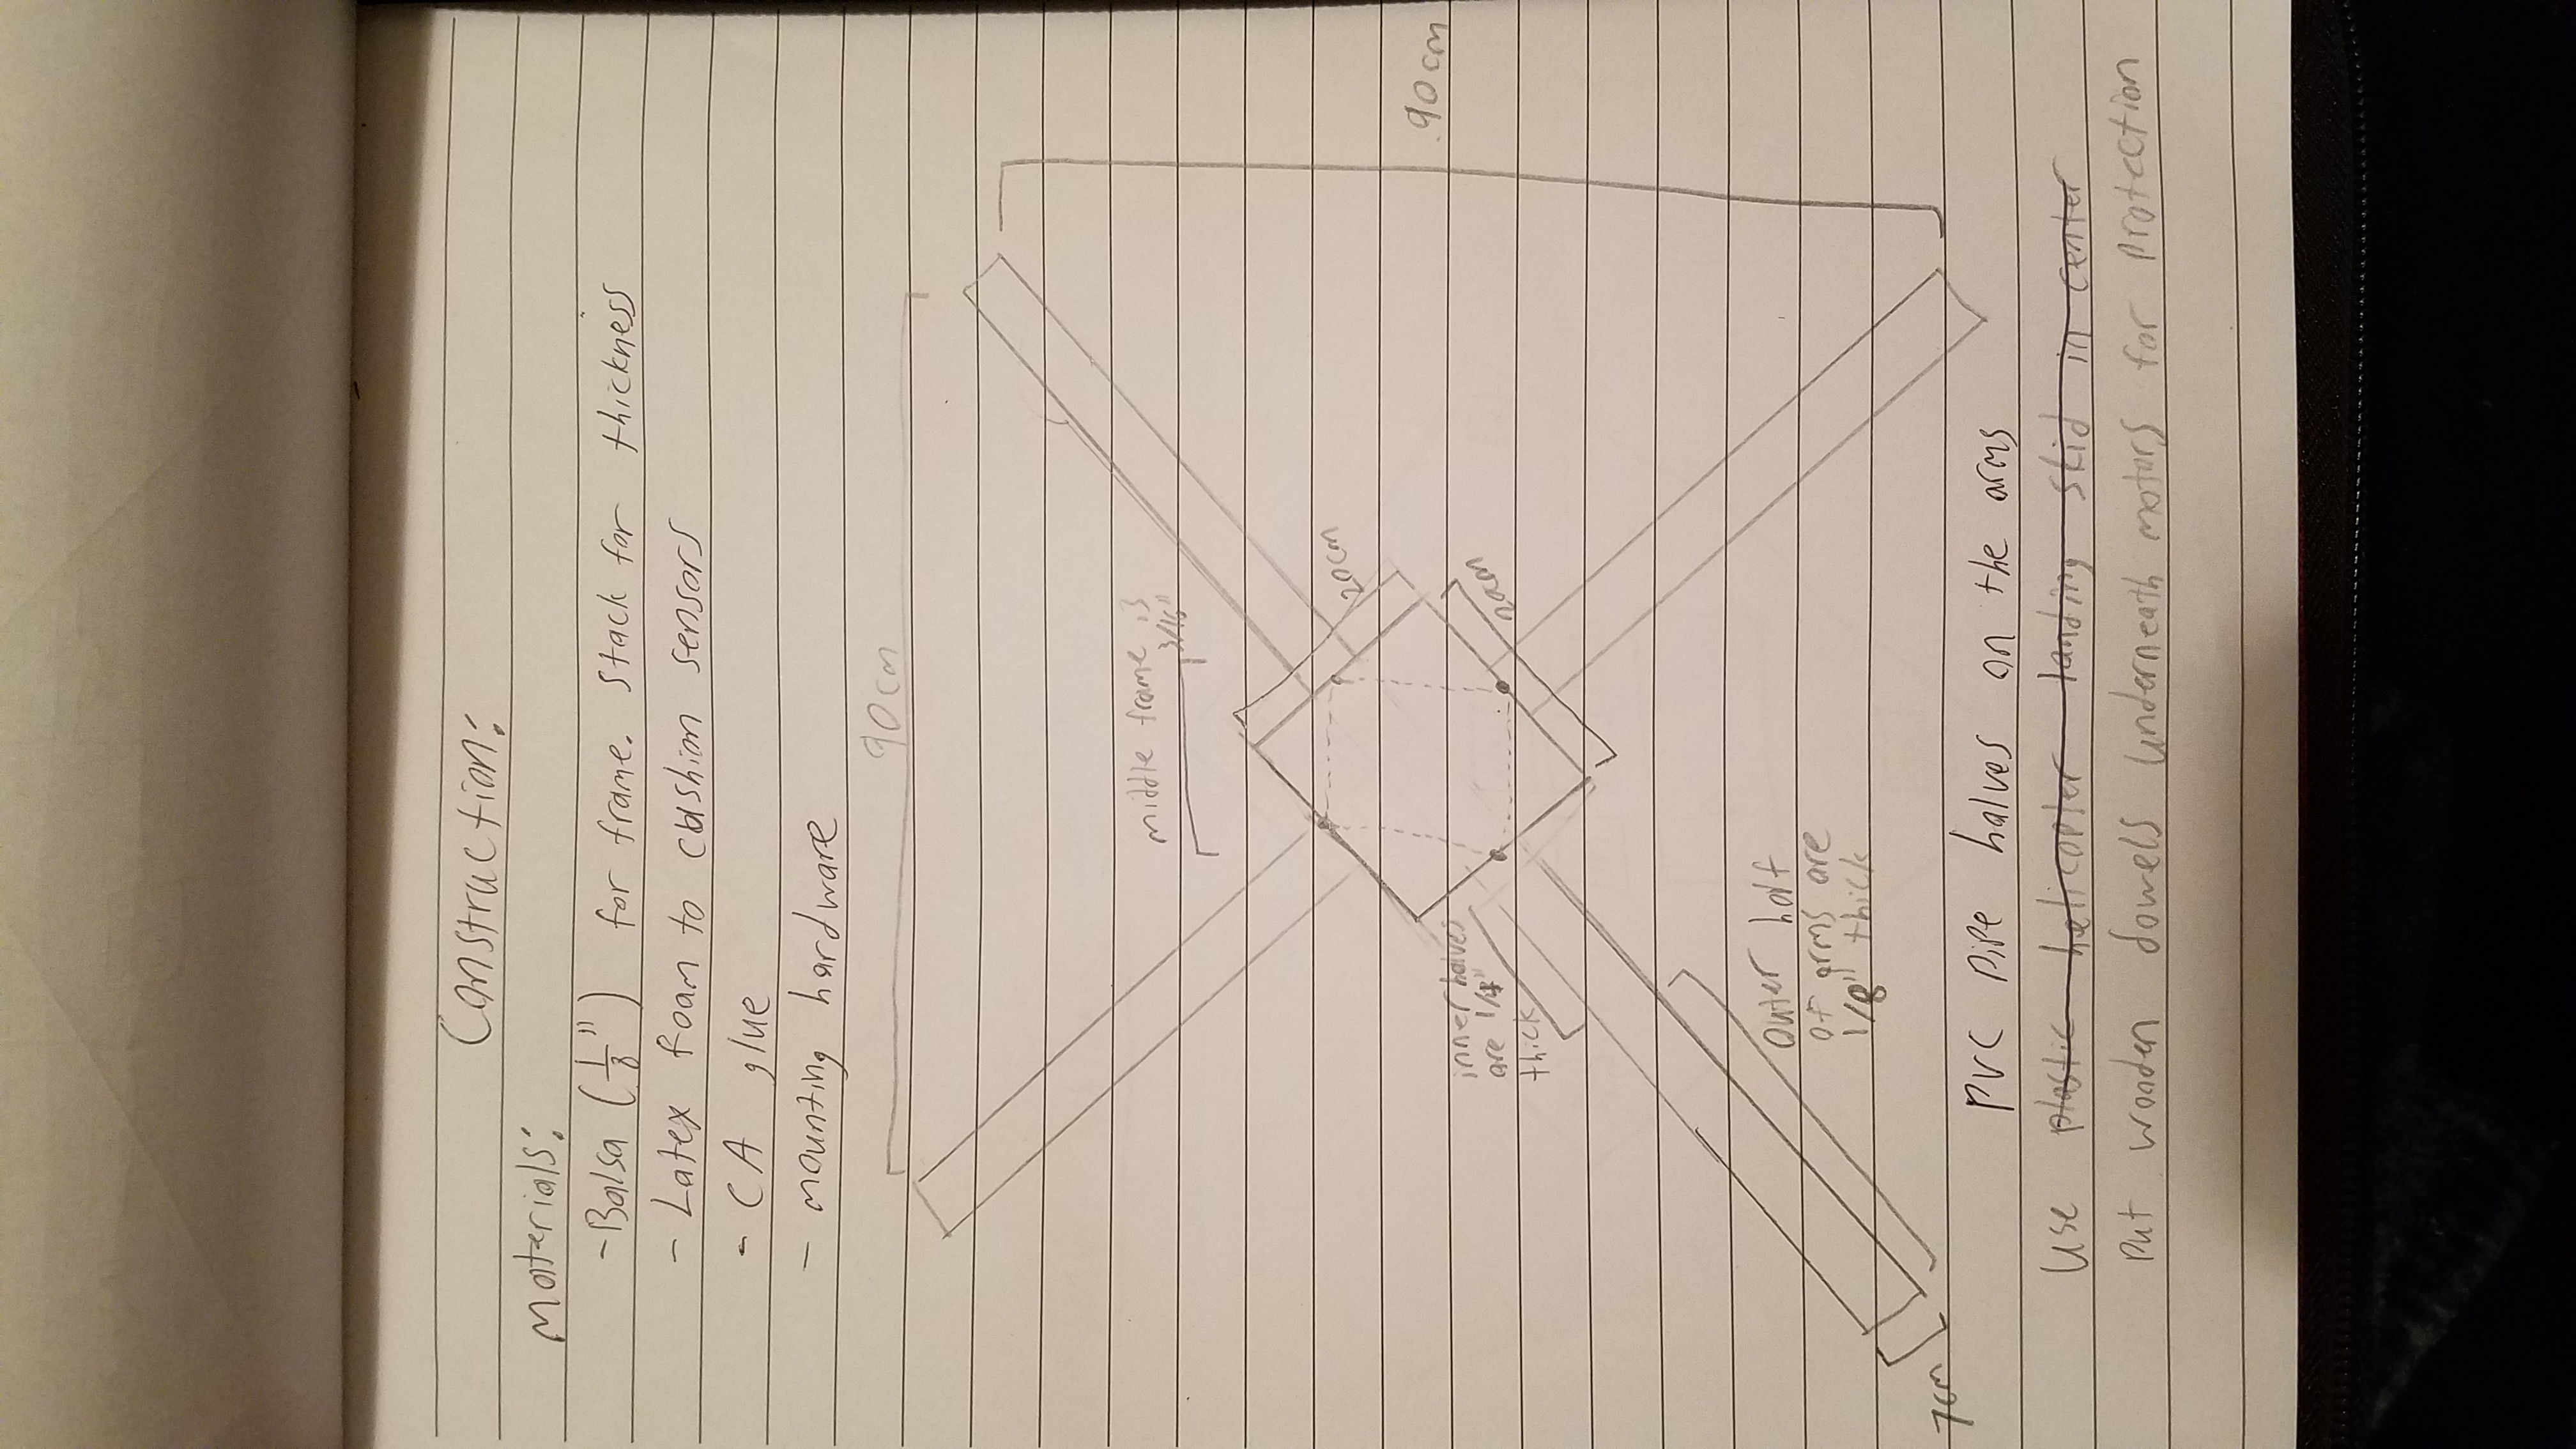 Construction:
Materials:
- Balsa (1/8") for frame. Stack for thickness
- Latex foam to cushion sensors
- CA glue
- mounting hardware
90cm
middle frame is
3/16"
20cm
90cm
inner halves
are 1/4"
thick
20cm
outer half
of arms are
1/8" thick
7cm
PVC pipe halves on the arms
Use plastic helicopter landing skid in center
Put wooden dowels underneath motors for protection